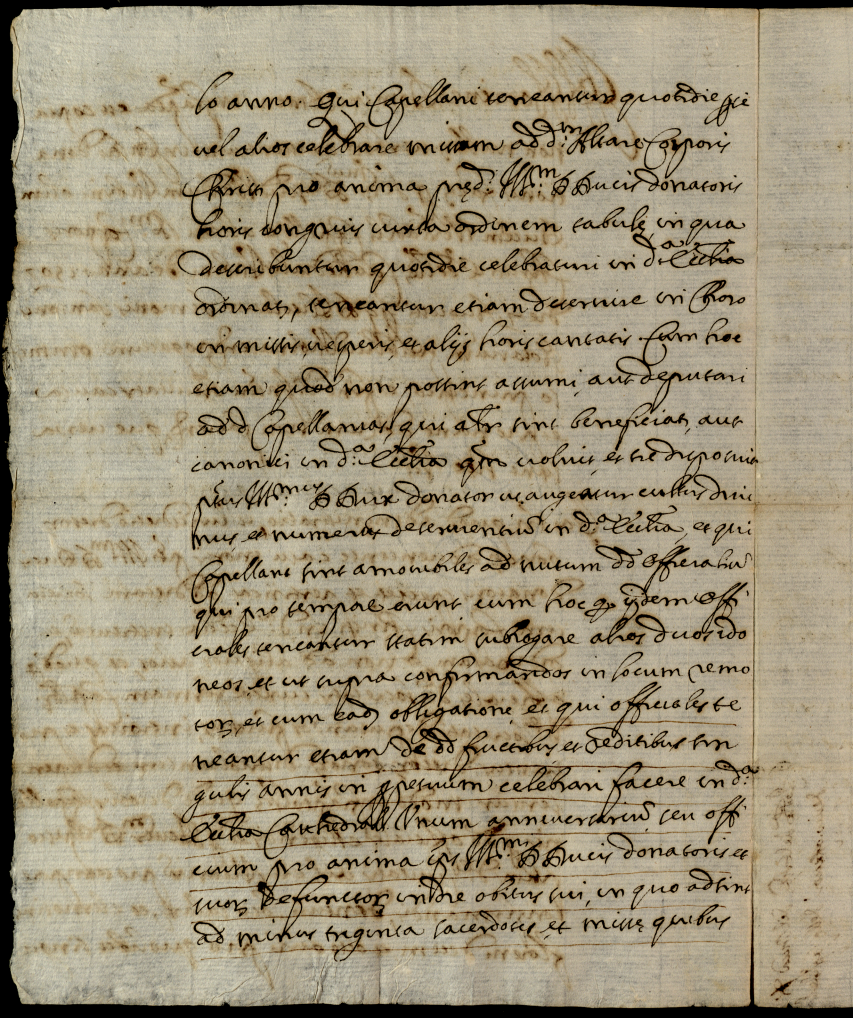 lo anno. Qui Capellani teneantur quotidie p se
vel alios celebrare missam ad d.m Altare Corporis
Christi pro anima pręd.i Ill.mi D Ducis donatoris
horis congruis iuxta ordinem tabulę in qua
describuntur quotidie celebraturi in d.a Ecclia
ordinati, teneantur etiam deservire in Choro
in missis, vesperis, et alijs horis cantatis Cum hoc
etiam quod non possint assumi, aut deputari
ad d Capellanias, qui alr sint beneficiati, aut
canonici in d.a Ecclia qm voluit, et sic disposuit
pfatus Ill.mus D Dux donator ut augeatur cultus divi
nus, et numerus deservientiũ in d.a Ecclia, et qui
Capellani sint amovibiles ad nutum dd Officialiũ
qui pro tempore erunt cum hoc q ijdem Offi
ciales teneantur statim subrogare alios duos ido
neos, et ut supra confirmandos in locum remo
tor, et cum ead obligatione, et qui officiales te
neantur etiam de dd fructibus et redditibus sin
gulis annis in ppetuum celebrari facere in d.a
Ecclia Cathedrali Unum anniversariũ seu offi
cium pro anima ipsius Ill.mi D Ducis donatoris et
suor defunctor in die obitus sui, in quo adsint
ad minus triginta sacerdotes, et missę quibus